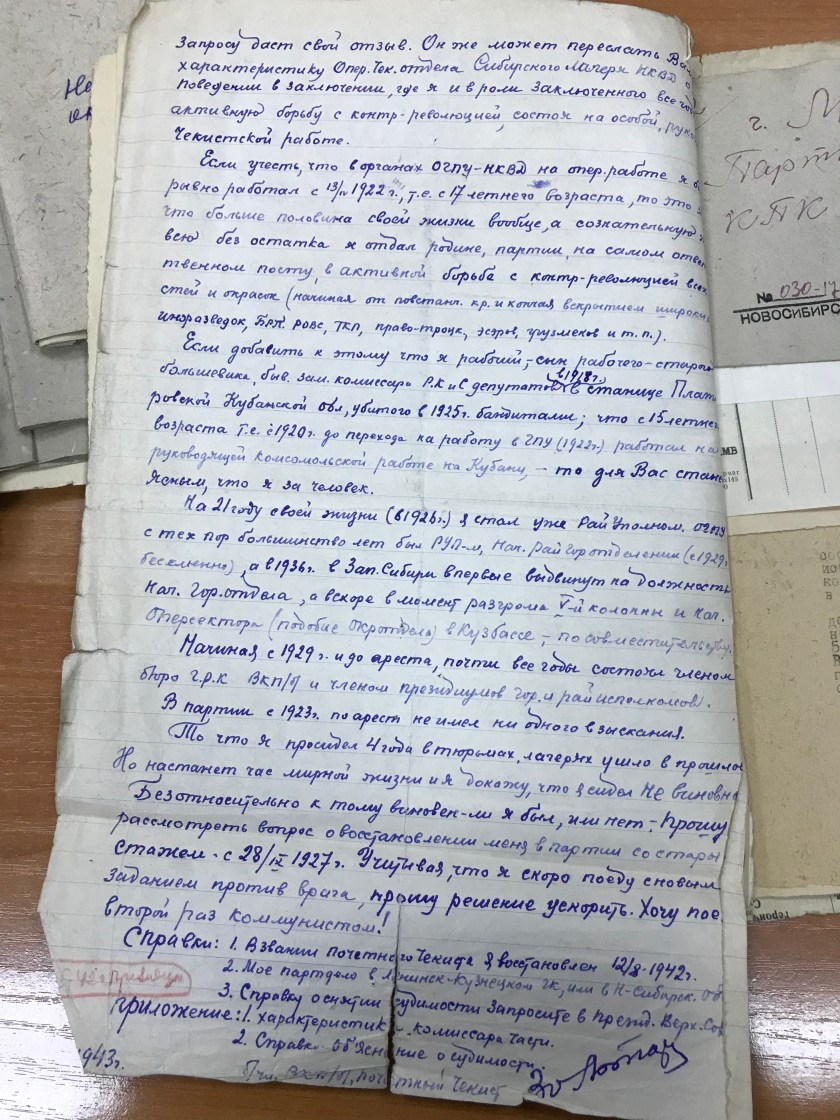 Запросу даст свой отзыв. Он же может переслать Вам
характеристику Опер.Чек.отдела Сибирского Лагеря НКВД о
поведении в заключении, где я и в роли заключенного все
активную борьбу с контр-революцией, состоя на особой,
Чекистской работе.
Если учесть, что в органах ОГПУ-НКВД на опер.работе я
рывно работал с 13/IV 1922 г., т.е. с 17 летнего возраста, то это
что больше половина своей жизни вообще, а сознательную
всю без остатка я отдал родине, партии, на самом ответ
ственном посту, в активной борьбе с контр-революцией всех
стей и окрасок (начиная от повстанч. кр. и кончая вскрытием широких
инразведок, БРП. РОВС, ТКП, право-троцк, эсэров, грузмеков и т.п.).
Если добавить к этому что я рабочий,- сын рабочего-старого
большевика, быв. зам. комиссара Р.К и С депутатов в 1918 г. в станице Плат
ровской Кубанской обл, убитого в 1925г. бандитами; что с 15 летнего
возраста т.е. с 1920г. до перехода на работу в ГПУ (1922г.) работал на
руководящей комсомольской работе на Кубани, - то для Вас стан
ясным, что я за человек.
На 21 году своей жизни (в 1926г.) я стал уже Рай Уполном. ОГПУ
с тех пор большинство лет был РУП-м, Нач. Рай Горотделении (с 1929г.
бессменно), а в 1936г. в Зап. Сибири впервые выдвинут на должность
Нач. Гор.отдела, а вскоре в момент разгрома V-й колонны и Нач.
Оперсектора (подобие окротдела) в Кузбассе, - по совместительству.
Начиная с 1929г. и до ареста, почти все годы состоял членом
бюро г.р.к ВКП/б/ и членом президиумов гор. и рай исполкомов.
В партии с 1923г. по арест не имел ни одного взыскания.
То что я просидел 4 года в тюрьмах, лагерях ушло в прошлое
Но настанет час мирной жизни и я докажу, что я сидел не виновно
Безотносительно к тому виновен-ли я был, или нет - Прошу
рассмотреть вопрос о восстановлении меня в партии со старым
стажем - с 28/IX 1927г. Учитывая, что я скоро поеду с новым
заданием против врага, прошу решение ускорить. Хочу пое
второй раз коммунистом!
Справки: 1. В звании почетного Чекиста я восстановлен 12/8-1942г.
2. Мое партдело в Ленинск-Кузнецком ГК, или в Н-Сибирск. Об
3. Справку о снятии судимости запросите в През. Верх. Сов
приложение: 1. Характеристик комиссара части.
2. Справк об'яснение о судимости.
1943г.
б/чл. ВКП/б/, почетный Чекист
ч. М
Парт
КПК
№ 030-17
НОВОСИБИРС